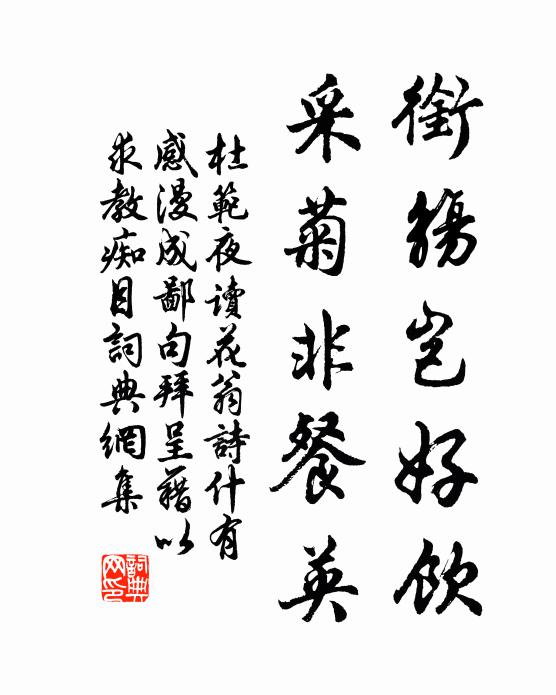 銜觴岂好飲
采菊非餐英
杜範夜讀花翁詩什有
感漫成鄙句拜呈藉以
求教痴目詞典網集
詞典網印